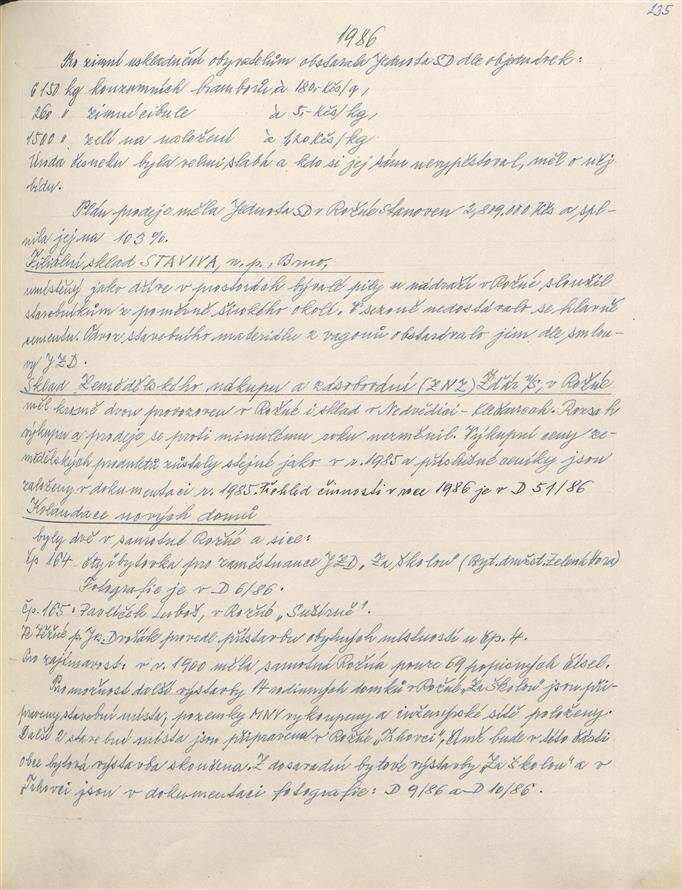 235
1986
Pro zimní uskladnění obyvatelům obstarala Jednota SD dle objednávek:
6150 kg konzumních bramborů, à 180,- Kčs/q,
260 " zimní cibule à 5,- Kčs/kg,
1500 " zelí na naložení à 1,20 Kčs/kg
Úroda česneku byla velmi slabá a kdo si jej sám nevypěstoval, měl o něj
bídu.
Plán prodeje měla Jednota SD v Rožné stanoven 2,809.000 Kčs a spl-
nila jej na 103 %.
Filiální sklad STAVIVA, n. p., Brno,
umístěný jako dříve v prostorách bývalé pily u nádraží v Rožné sloužil
stavebníkům z poměrně širokého okolí. V sezoně nedostávalo se hlavně
cementu. Odvoz stavebního materiálu z vagonů obstarávalo jim dle smlou-
vy JZD.
Sklad Zemědělského nákupu a zásobování (ZNZ) Žďár n/S, v Rožné
měl kromě dvou provozoven v Rožné i sklad v Nedvědici - Klečanech. Rozsah
výkupu a prodeje se proti minulému roku nezměnil. Výkupní ceny ze-
mědělských produktů zůstaly stejné jako v r. 1985 a příslušné ceníky jsou
založeny v dokumentaci r. 1985. Přehled činnosti v roce 1986 je v D 51/86
Kolaudace nových domů
byly dvě v samotné Rožné a sice:
čp 164 - čtyřbytovka pro zaměstnance JZD "Za školou" (Byt. družst. Zelená Hora)
Fotografie je v D 6/86.
čp. 165: Pavlíček Luboš, v Rožné "
p. Dvořák provedl přístavbu obytných místností u čp. 4.
Pro zajímavost: v r. 1900 měla samotná Rožná pouze 69 popisných čísel.
Pro možnost další výstavby 14 rodinných domků v Rožné "Za školou" jsou při-
praveny stavební místa, pozemky MNV vykoupeny a inženýrské sítě položeny.
Další 2 stavební místa jsou připravena v Rožné, čímž bude v této části
obce bytová výstavba skončena. Z dosavadní bytové výstavby "Za školou" a v
jsou v dokumentaci fotografie: D 9/86 a D 10/86.